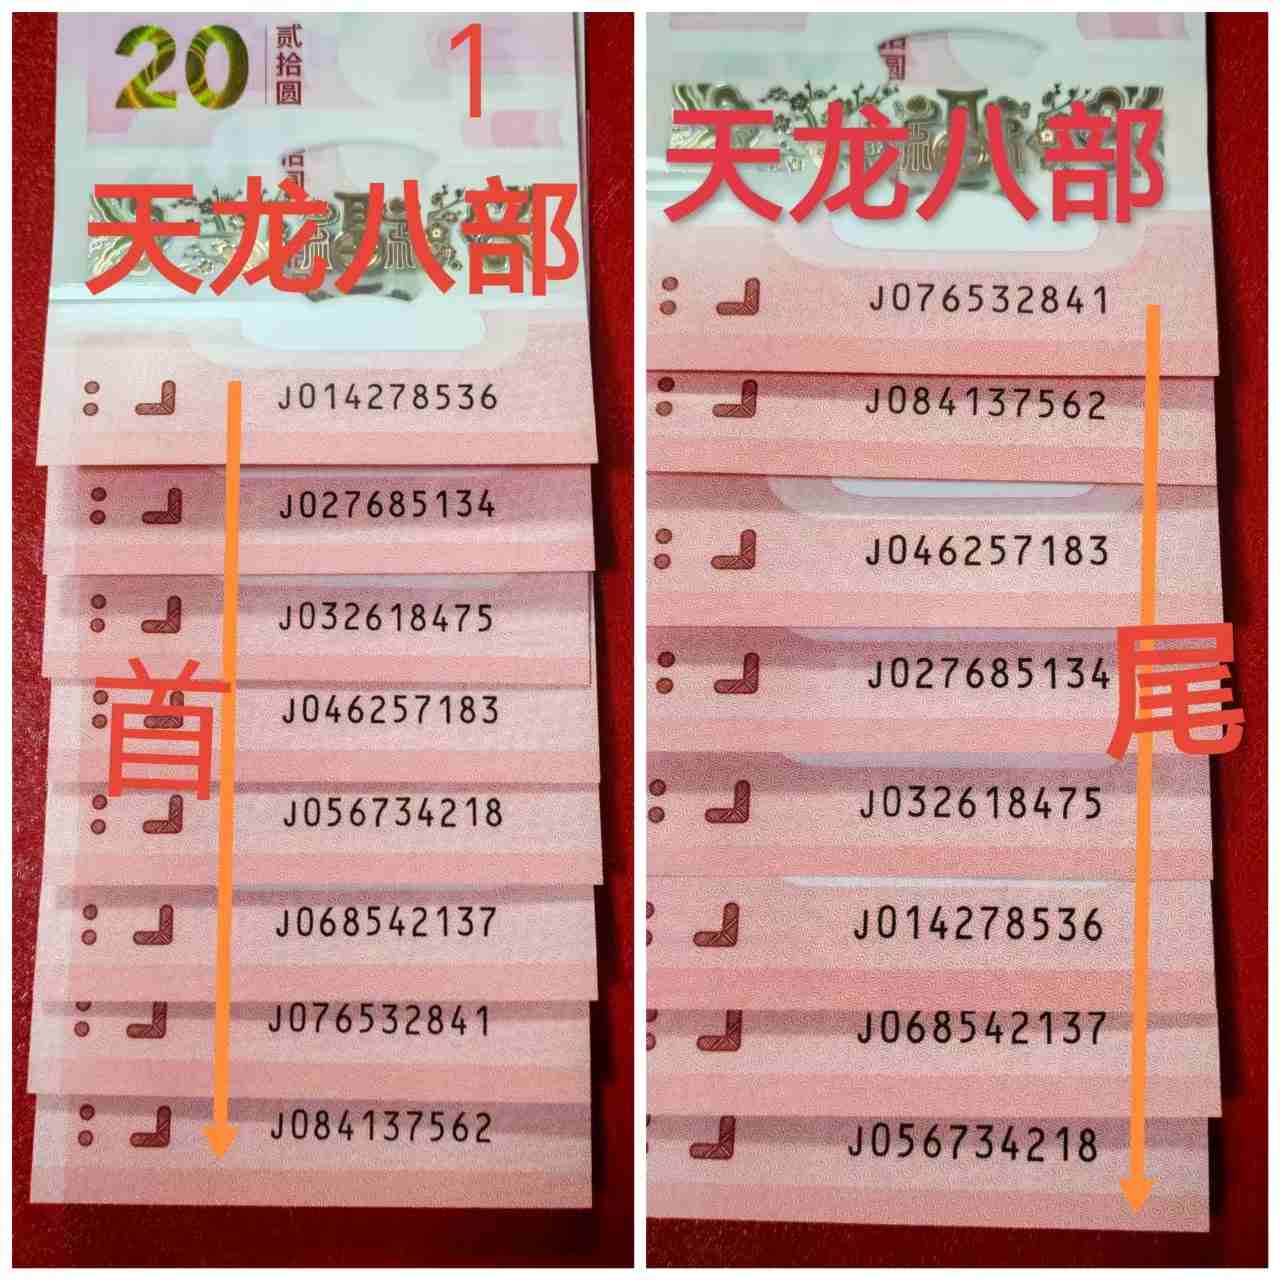 20 贰拾圆 1
天龙八部
J014278536
J027685134
J032618475
首
J046257183
J056734218
J068542137
J076532841
J084137562
天龙八部
J076532841
J084137562
J046257183
J027685134
尾
J032618475
J014278536
J068542137
J056734218